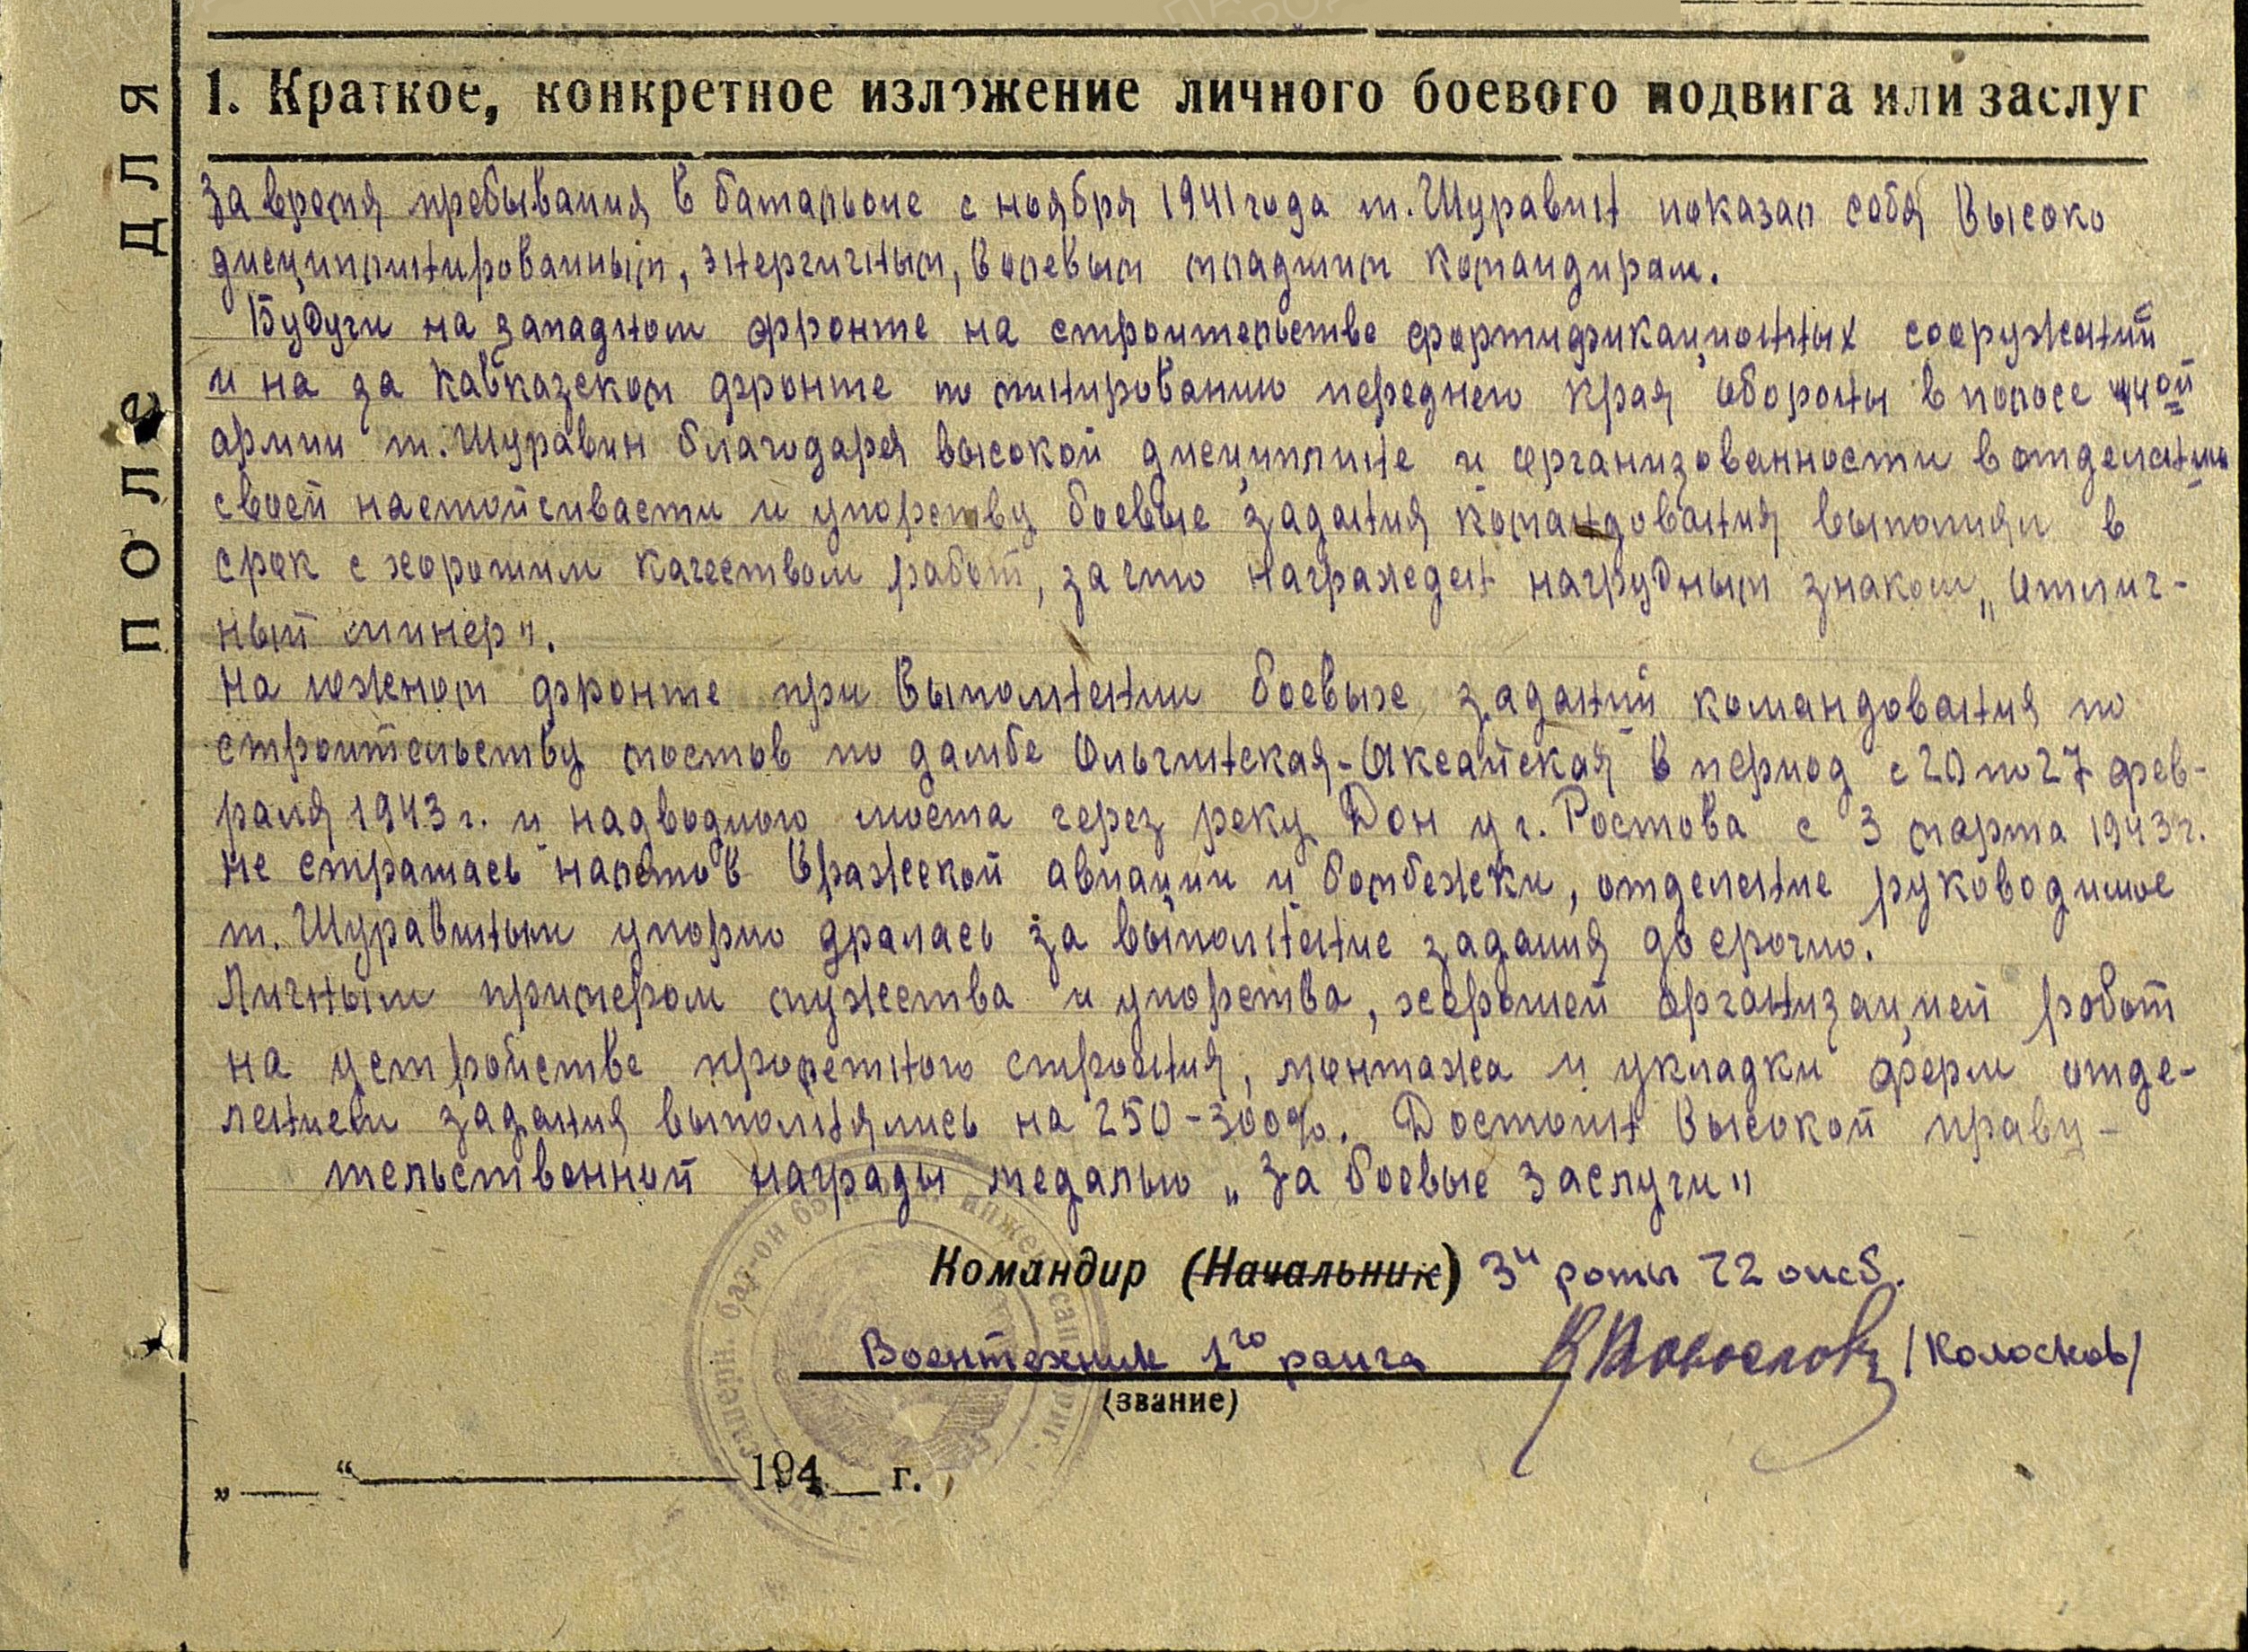 ПОЛЕ ДЛЯ
1. Краткое, конкретное изложение личного боевого подвига или заслуг
За время пребывания в батальоне с ноября 1941 года т. Шуравин показал себя высоко
дисциплинированным, энергичным, волевым младшим командиром.
Будучи на западном фронте на строительстве фортификационных сооружений
и на за Кавказском фронте по минированию переднего края обороны в полосе 44ой
армии т. Шуравин благодаря высокой дисциплине и организованности в отделении
своей настойсивасти и упорству боевые задания командования выполнял в
срок с хорошим качеством работ, за что награжден нагрудным знаком „Отлич-
ный минер".
На южном фронте при выполнении боевых заданий командования по
строительству мостов по дамбе Ольгинская-Аксайская в период с 20 по 27 фев-
раля 1943 г. и надводного моста через реку Дон у г. Ростова с 3 марта 1943 г.
не страшась налетов вражеской авиации и бомбежки, отделение руководимое
т. Шуравиным упорно дралась за выполнение задания досрочно.
Личным примером мужества и упорства, хорошей организацией работ
на устройстве пролетного строения, монтажа и укладки ферм отде-
лением задания выполнялись на 250-300%. Достоин высокой прави-
тельственной награды медалью „За боевые заслуги"
Командир (Начальник) 3й роты 72 оисб.
Воентехник 1го ранга /Колосков/
(звание)
„ “ 194 г.